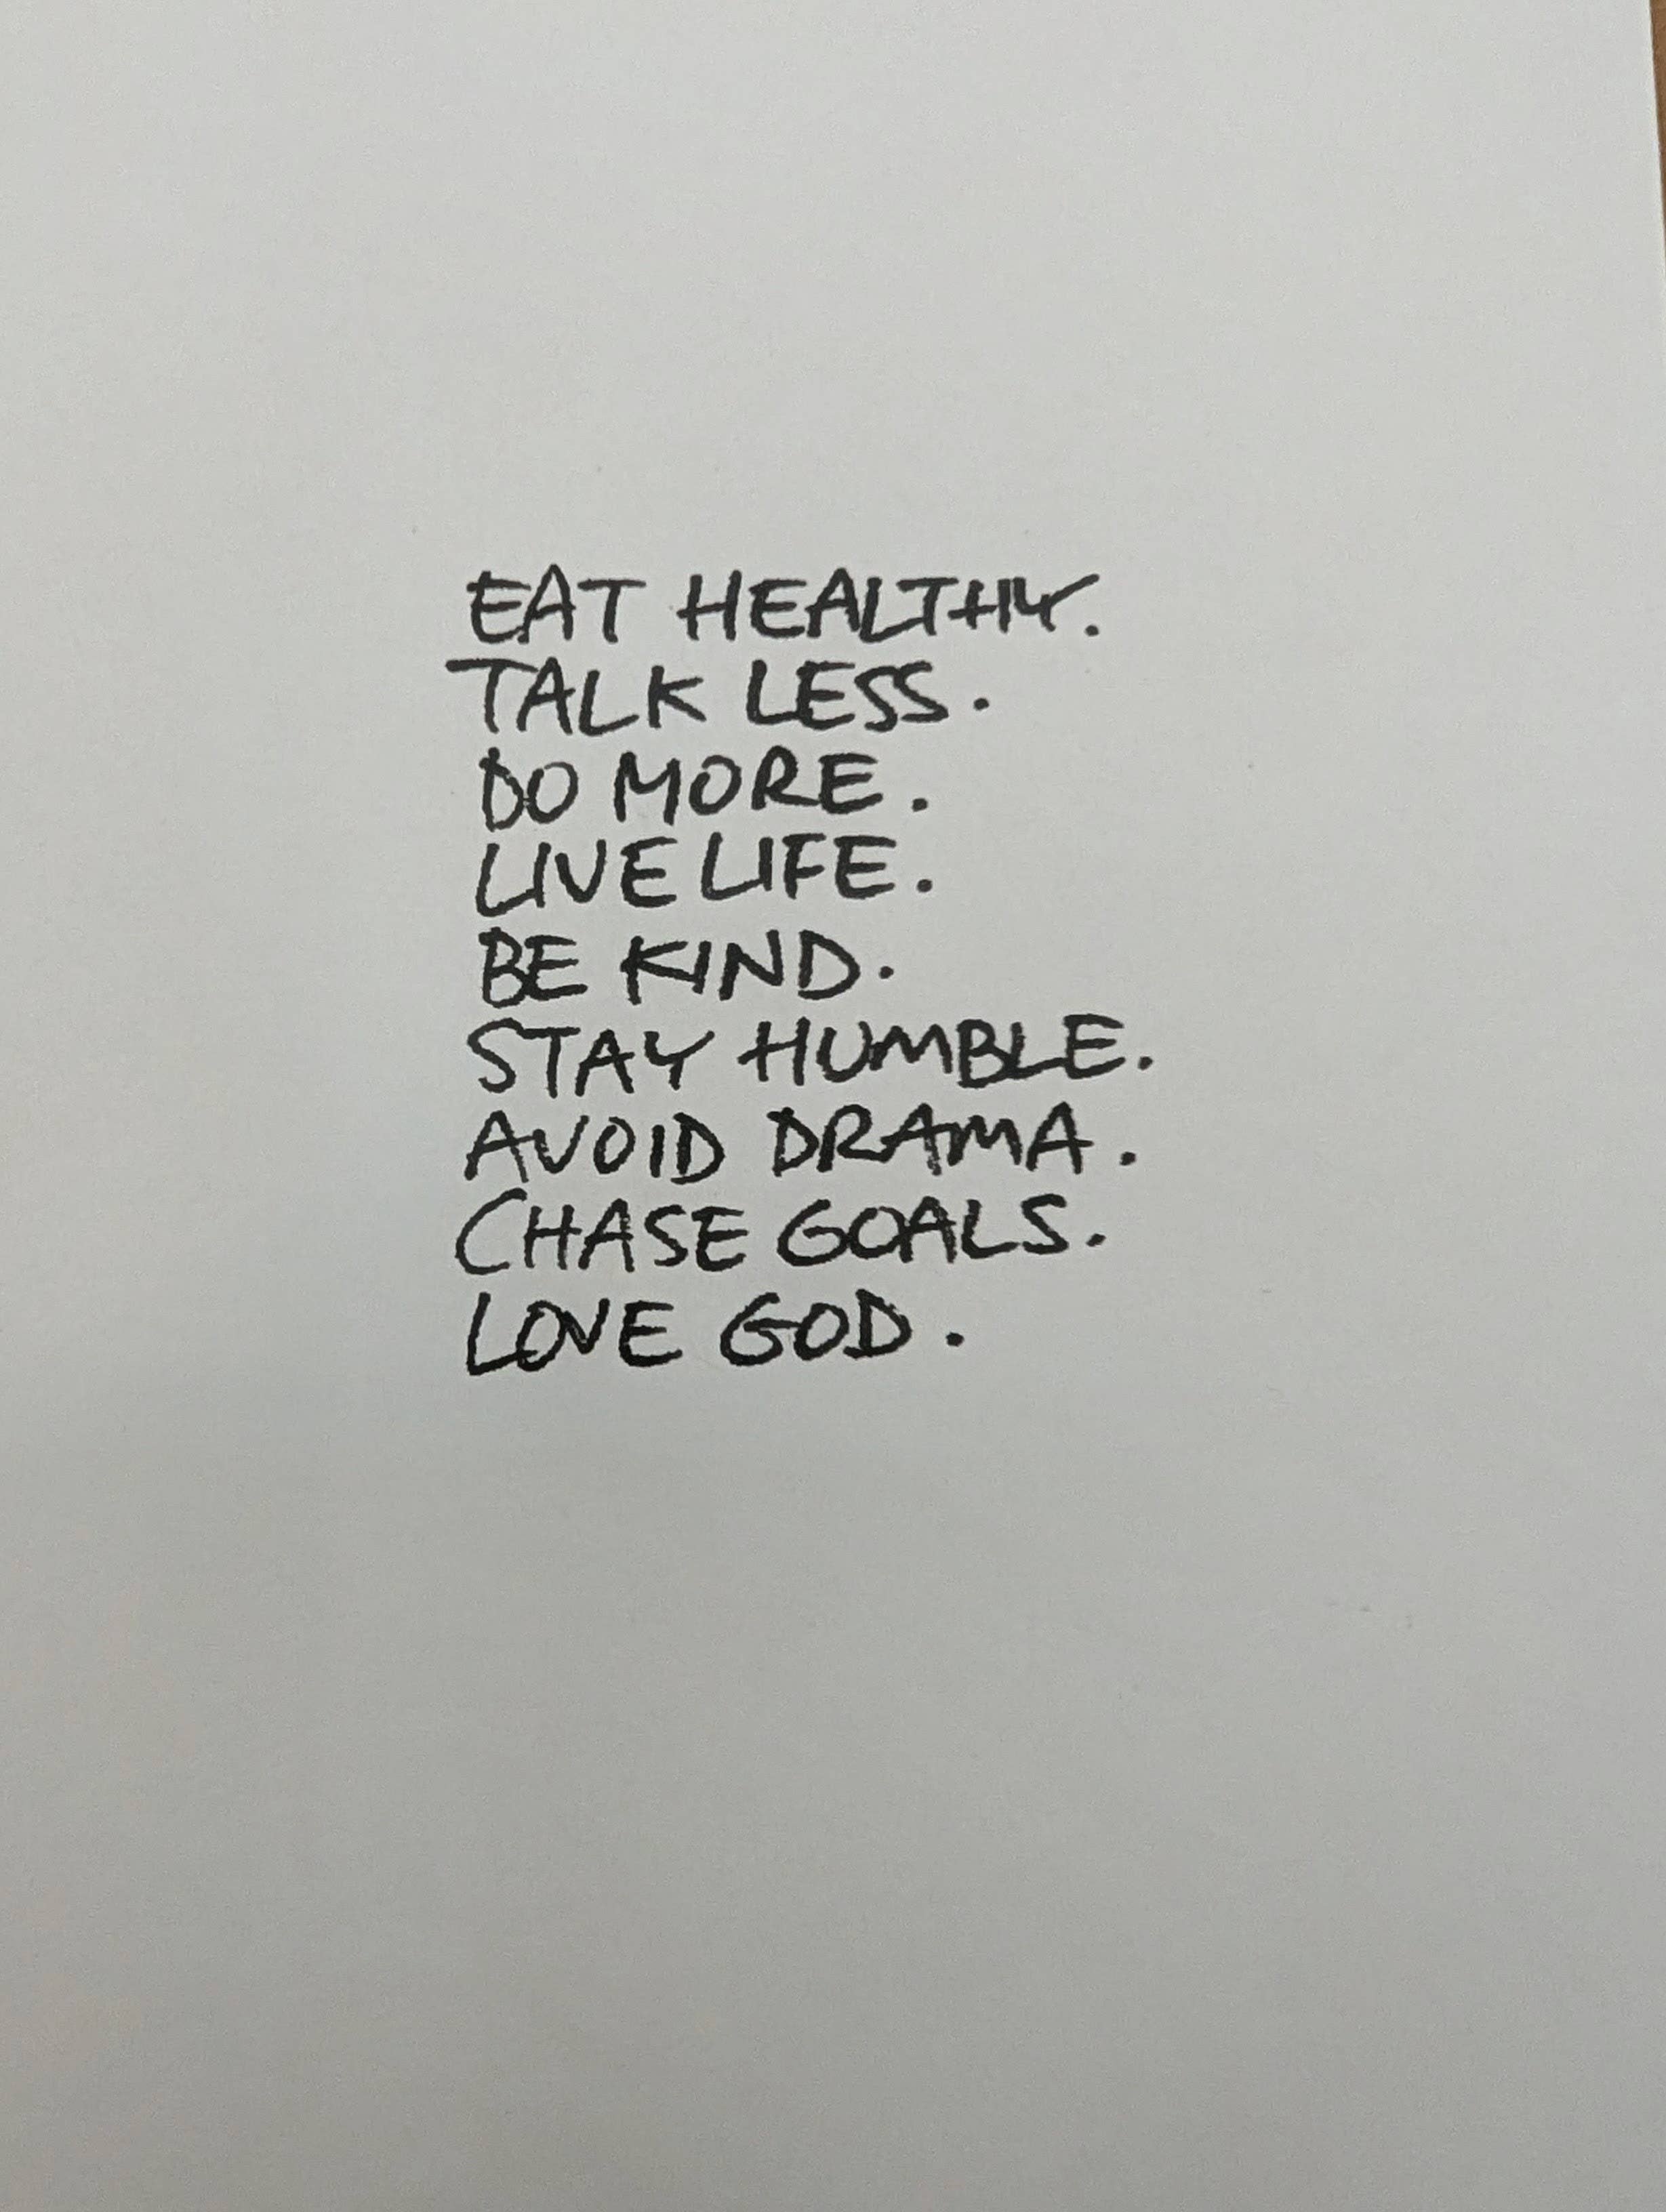 EAT HEALTHY.
TALK LESS.
DO MORE.
LIVE LIFE.
BE KIND.
STAY HUMBLE.
AVOID DRAMA.
CHASE GOALS.
LOVE GOD.